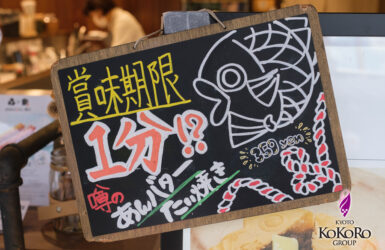 賞味期限
1分!?
噂の
あんバター
たい焼き
KYOTO
KOKORO
GROUP